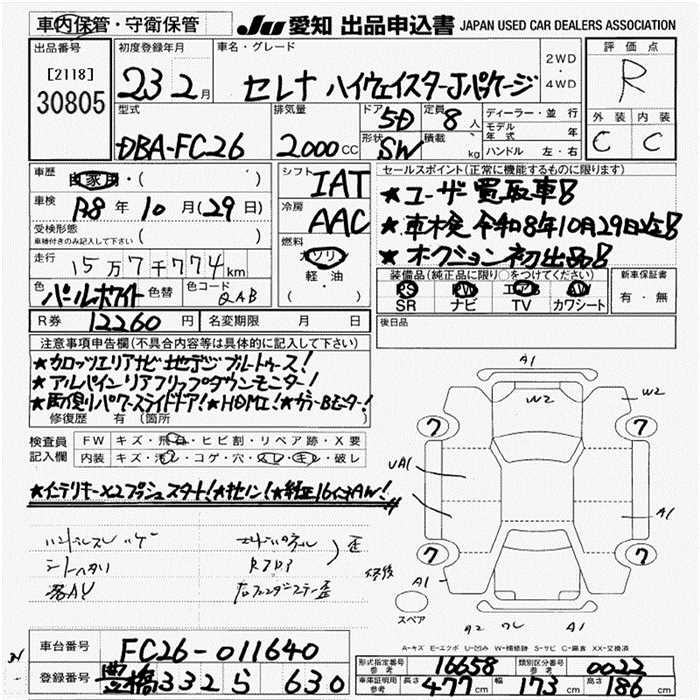 車内保管・守衛保管
JU 愛知 出品申込書 JAPAN USED CAR DEALERS ASSOCIATION
出品番号
[2118]
30805
初度登録年月
23 2月
車名・グレード
セレナ ハイウェイスターJパッケージ
2WD
・
4WD
評価点
R
型式
DBA-FC26
排気量
2000 CC
ドア 5D
形状 SW
定員 8 人
積載 kg
ディーラー・並行
モデル年式 年
ハンドル 左・右
外装 内装
C C
車歴 自家用・( )
車検 R8年10月(29日)
受検形態
車検付きのみ記入して下さい ( )
走行 15万7千774km
色 パールホワイト 色替 色コード QAB
R券 12260円 名変期限 月 日
シフト IAT
冷房 AAC
燃料
ガソリン
軽・油
・( )
セールスポイント(正常に機能するものに限ります)
★ユーザー買取車!
★車検令和8年10月29日迄!
★オークション初出品!
装備品(純正品に限り○をつけてください)
PS PW エアB AW
SR ナビ TV カワシート
新車保証書
有・無
後日品
注意事項申告欄(不具合内容等は具体的に記入して下さい)
★カロッツエリアナビ地デジブルートゥース!
★アルパインリアフリップダウンモニター!
★両側パワースライドドア!★HDMI!★カラーBモニター!
修復歴 有(箇所 )
検査員記入欄
FW キズ・飛石・ヒビ割・リペア跡・X要
内装 キズ・汚レ・コゲ・穴・スレ・キレ・破レ
★インテリキー×2プッシュスタート!★キセノン!★純正16インチAW!
ハンドルスレ ハゲ
シートヘタリ
R7P7
歪
修後
A1
W2
W2
7
7
7
7
UA1
A1
A1
A2
A1
スペア
A-キズ E-エクボ U-凹み W-補修跡 S-サビ C-腐食 XX-交換済
車台番号 FC26-011640
登録番号 豊橋 332 ら 630
形式指定番号 参考 16658 類別区分番号 参考 0022
車庫証明用 参考 長さ 477cm 幅 173cm 高さ 186cm